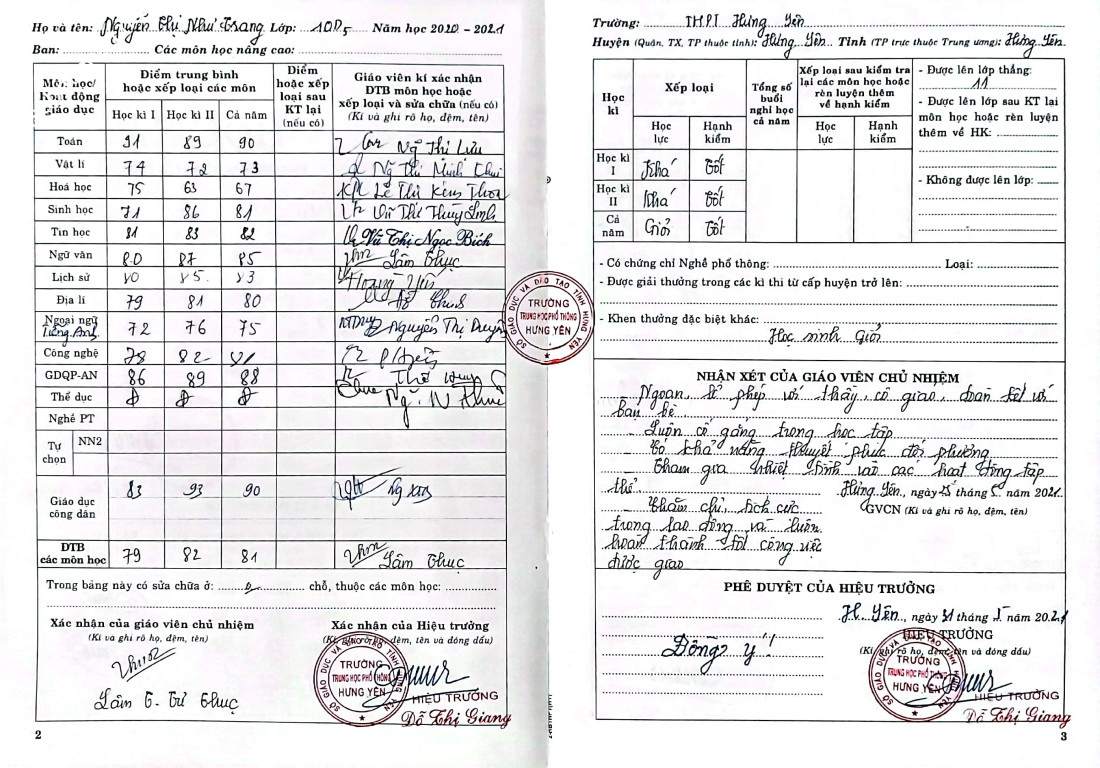 Họ và tên: Nguyễn Thị Như Trang Lớp: 10D5 Năm học 2020 - 2021
Ban: Các môn học nâng cao:
Môn học/ Hoạt động giáo dục
Điểm trung bình hoặc xếp loại các môn
Học kì I Học kì II Cả năm
Điểm hoặc xếp loại sau KT lại (nếu có)
Giáo viên kí xác nhận ĐTB môn học hoặc xếp loại và sửa chữa (nếu có)
(Kí và ghi rõ họ, đệm, tên)
Toán 91 89 90 Ng Thị Lưu
Vật lí 74 72 73 Ng Thị Minh
Hoá học 75 63 67 Lê Thị Kim Thoa
Sinh học 71 86 81 Vũ Thị Thùy Linh
Tin học 81 83 82 Vũ Thị Ngọc Bích
Ngữ văn 80 87 85 Lâm Thục
Lịch sử 80 85 83 Hoàng Yến
Địa lí 79 81 80
Ngoại ngữ Tiếng Anh 72 76 75 Nguyễn Thị Duyên
Công nghệ 78 82 81
GDQP-AN 86 89 88
Thể dục Đ Đ Đ
Nghề PT
Tự chọn NN2
Giáo dục công dân 83 93 90 Ng
ĐTB các môn học 79 82 81 Lâm Thục
Trong bảng này có sửa chữa ở: 0 chỗ, thuộc các môn học:
Xác nhận của giáo viên chủ nhiệm
(Kí và ghi rõ họ, đệm, tên)
Lâm T. Tử Thục
Xác nhận của Hiệu trưởng
(Kí, ghi rõ họ, đệm, tên và đóng dấu)
SỞ GIÁO DỤC VÀ ĐÀO TẠO TỈNH HƯNG YÊN
TRƯỜNG
TRUNG HỌC PHỔ THÔNG
HƯNG YÊN
HIỆU TRƯỞNG
Đỗ Thị Giang
2
SỞ GIÁO DỤC VÀ ĐÀO TẠO TỈNH HƯNG YÊN
TRƯỜNG
TRUNG HỌC PHỔ THÔNG
HƯNG YÊN
Trường: THPT Hưng Yên
Huyện (Quận, TX, TP thuộc tỉnh): Hưng Yên Tỉnh (TP trực thuộc Trung ương): Hưng Yên
Học kì
Xếp loại
Học lực Hạnh kiểm
Tổng số buổi nghỉ học cả năm
Xếp loại sau kiểm tra lại các môn học hoặc rèn luyện thêm về hạnh kiểm
Học lực Hạnh kiểm
Học kì I Khá Tốt
Học kì II Khá Tốt
Cả năm Giỏi Tốt
- Được lên lớp thẳng:
11
- Được lên lớp sau KT lại môn học hoặc rèn luyện thêm về HK:
- Không được lên lớp:
- Có chứng chỉ Nghề phổ thông: Loại:
- Được giải thưởng trong các kì thi từ cấp huyện trở lên:
- Khen thưởng đặc biệt khác:
Học sinh Giỏi
NHẬN XÉT CỦA GIÁO VIÊN CHỦ NHIỆM
- Ngoan, lễ phép với thầy, cô giáo, đoàn kết với
bạn bè
- Luôn cố gắng trong học tập
- Có khả năng thuyết phục đối phương
- Tham gia nhiệt tình vào các hoạt động tập
thể.
- Chăm chỉ, tích cực
trong lao động và luôn
hoàn thành tốt công việc
được giao
Hưng Yên, ngày 25 tháng 5 năm 2021
GVCN (Kí và ghi rõ họ, đệm, tên)
PHÊ DUYỆT CỦA HIỆU TRƯỞNG
H. Yên, ngày 31 tháng 5 năm 2021
HIỆU TRƯỞNG
(Kí, ghi rõ họ, đệm, tên và đóng dấu)
Đồng ý!
SỞ GIÁO DỤC VÀ ĐÀO TẠO TỈNH HƯNG YÊN
TRƯỜNG
TRUNG HỌC PHỔ THÔNG
HƯNG YÊN
HIỆU TRƯỞNG
Đỗ Thị Giang
3